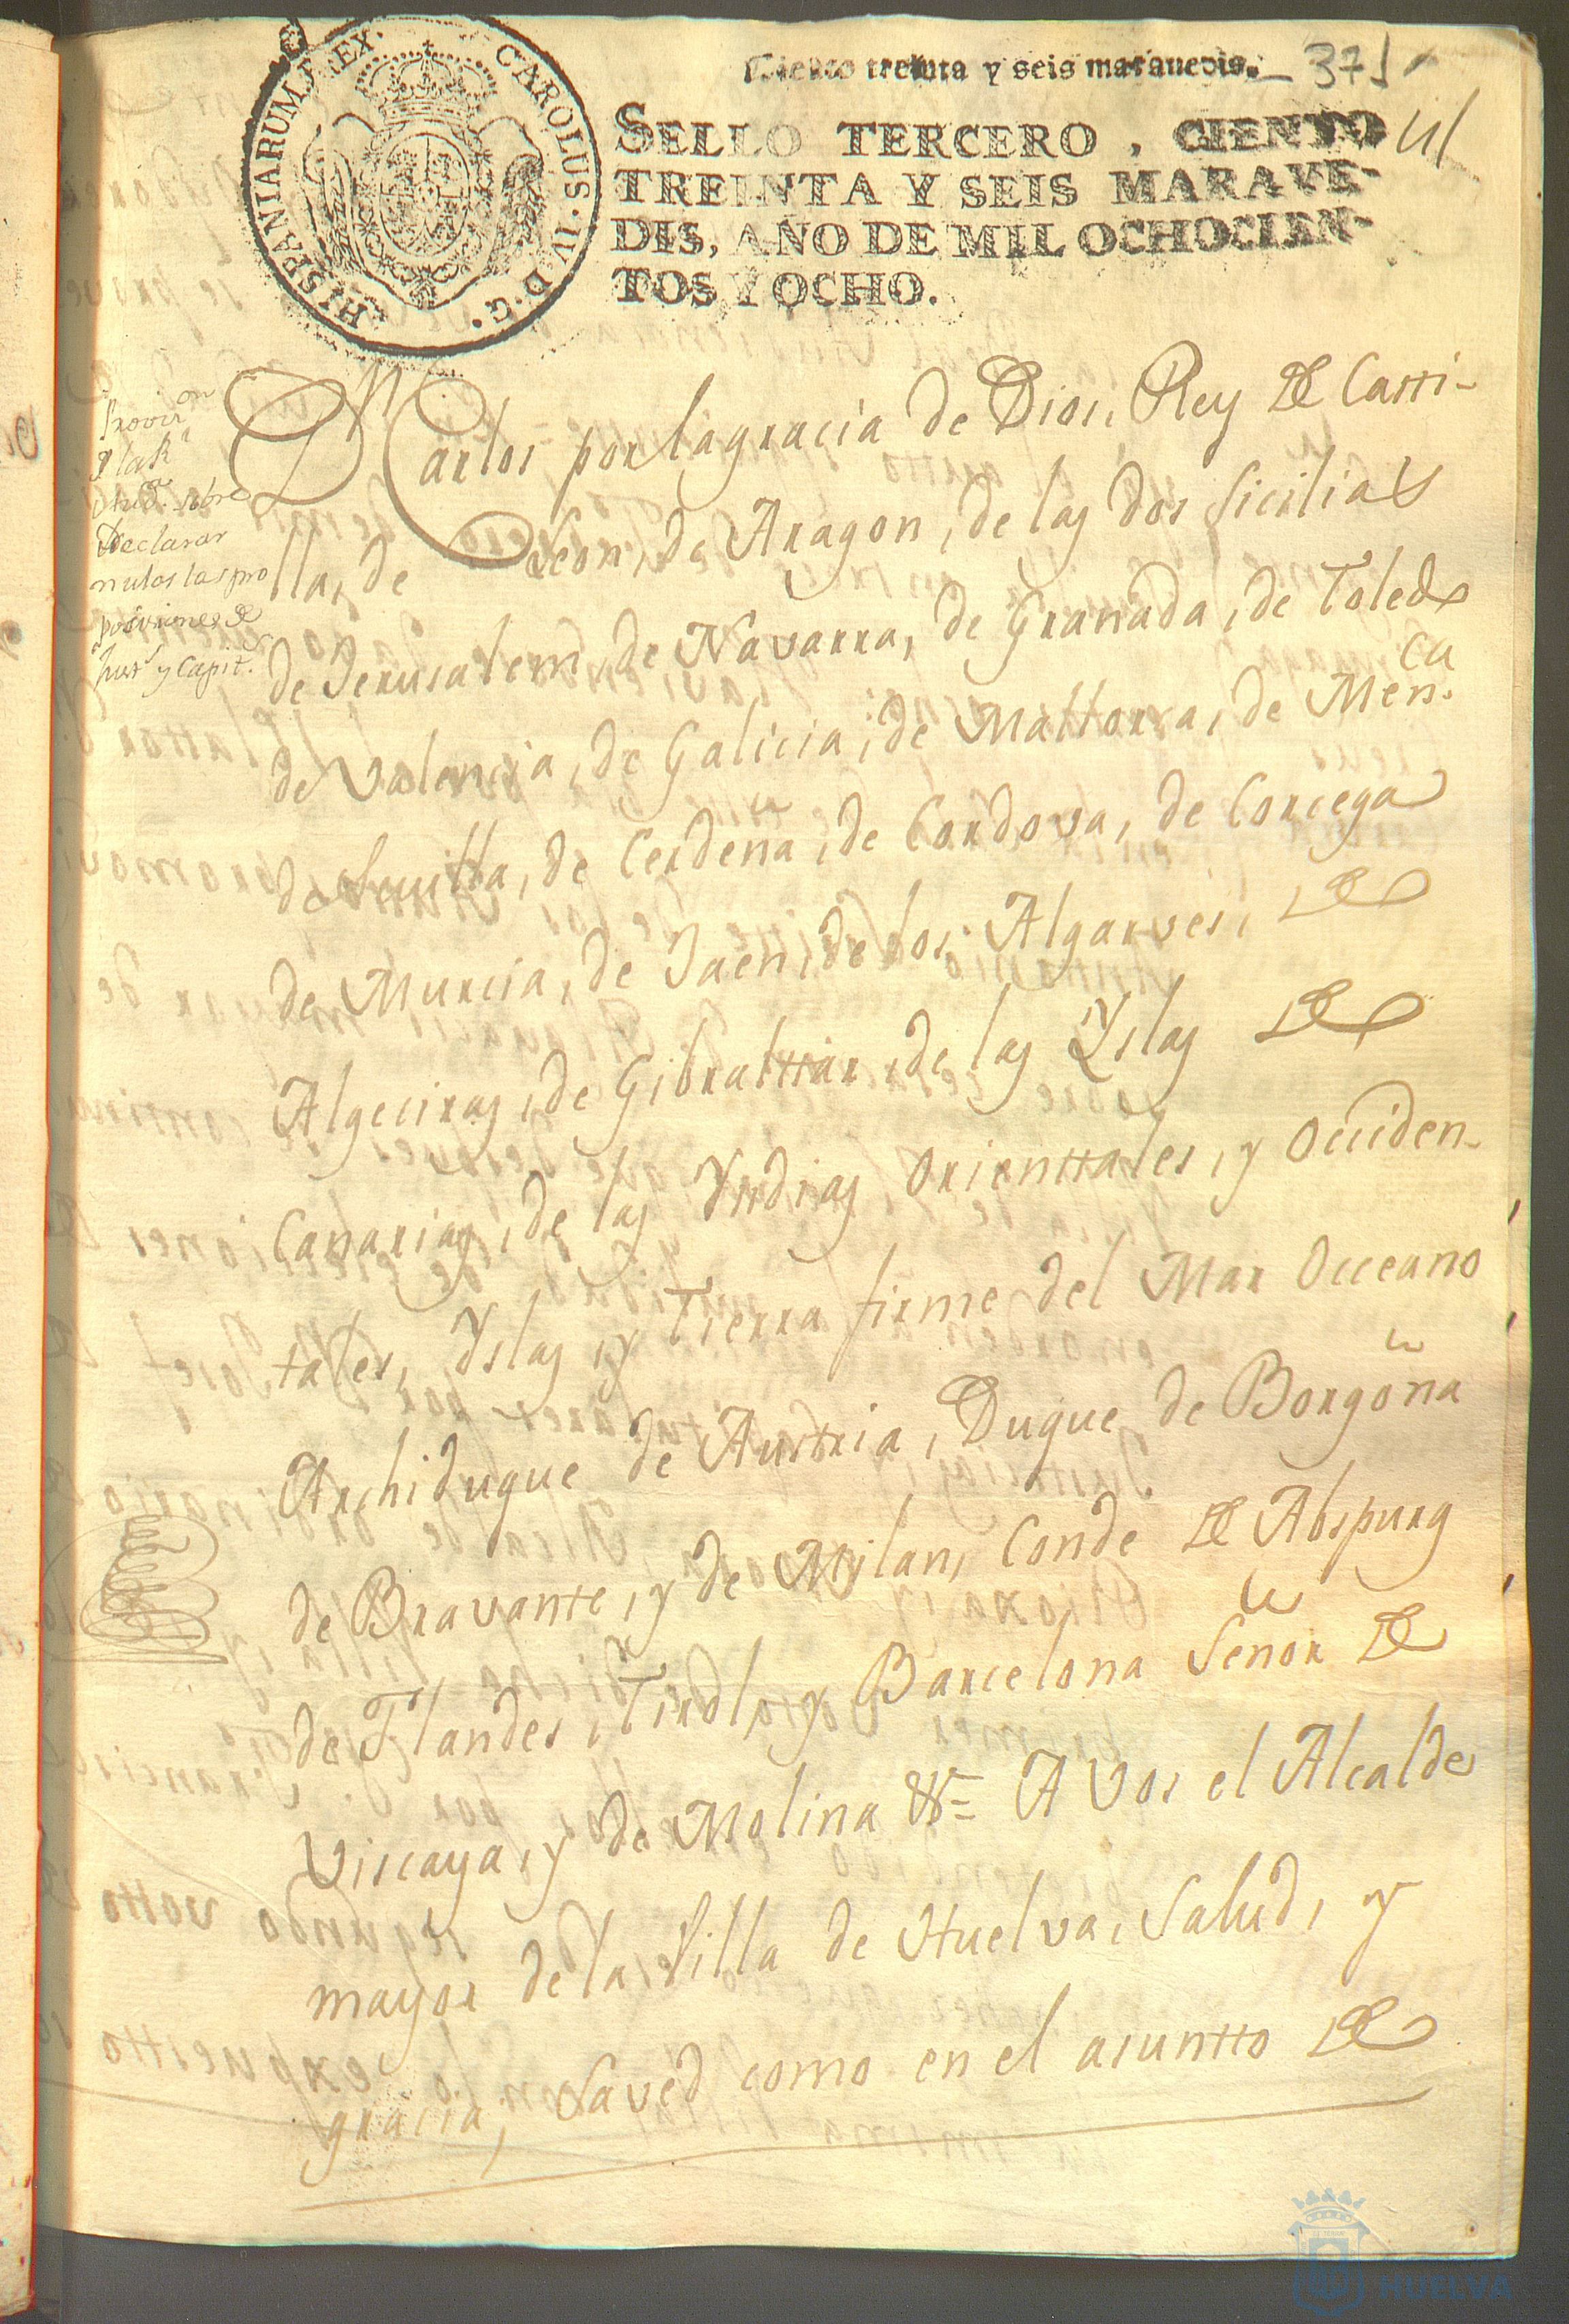 HISPANIARUM REX. CAROLUS·IV·D·G·
Ciento treinta y seis maravedis.
371
41
SELLO TERCERO, CIENTO
TREINTA Y SEIS MARAVE-
DIS, AÑO DE MIL OCHOCIEN-
TOS Y OCHO.
Provis.on
d la R.l
Aud.a sobre
Declarar
nulas las pro
posiciones de
Just.s y Capit.
Dn Carlos por la gracia de Dios, Rey de Casti-
lla, de Leon, de Aragon, de las dos Sicilias
de Jerusalem, de Navarra, de Granada, de Toledo
de Valencia, de Galicia, de Mallorca, de Menca
de Sevilla, de Cerdeña, de Cordova, de Corcega
de Murcia, de Jaen, de los Algarves, de
Algeciras, de Gibralttar, de las Yslas de
Canarias, de las Yndias Orienttales, y Occiden-
tales, Yslas, y Tierra firme del Mar Occeano
Archiduque de Austria, Duque de Borgoña
de Bravante, y de Milan, Conde de Abspurg
de Flandes, Tirol, y Barcelona Señor de
Viscaya, y de Molina &a = A Vos el Alcalde
mayor de la Villa de Huelva, Salud, y
gracia, Saved como en el asuntto de
HUELVA